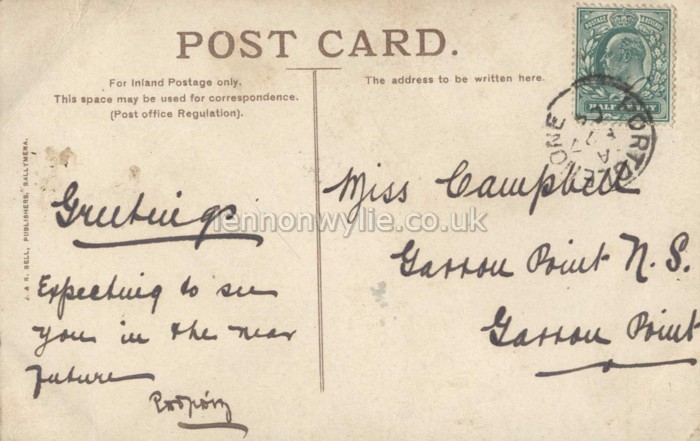 POST CARD.
For Inland Postage only.
This space may be used for correspondence.
(Post office Regulation).
The address to be written here.
POSTAGE & REVENUE
HALF PENNY
PORTGLENONE
J. & R. BELL, PUBLISHERS, BALLYMENA.
lennonwylie.co.uk
Greetings
Expecting to see
you in the near
future
Miss Campbell
Garron Point N.S.
Garron Point